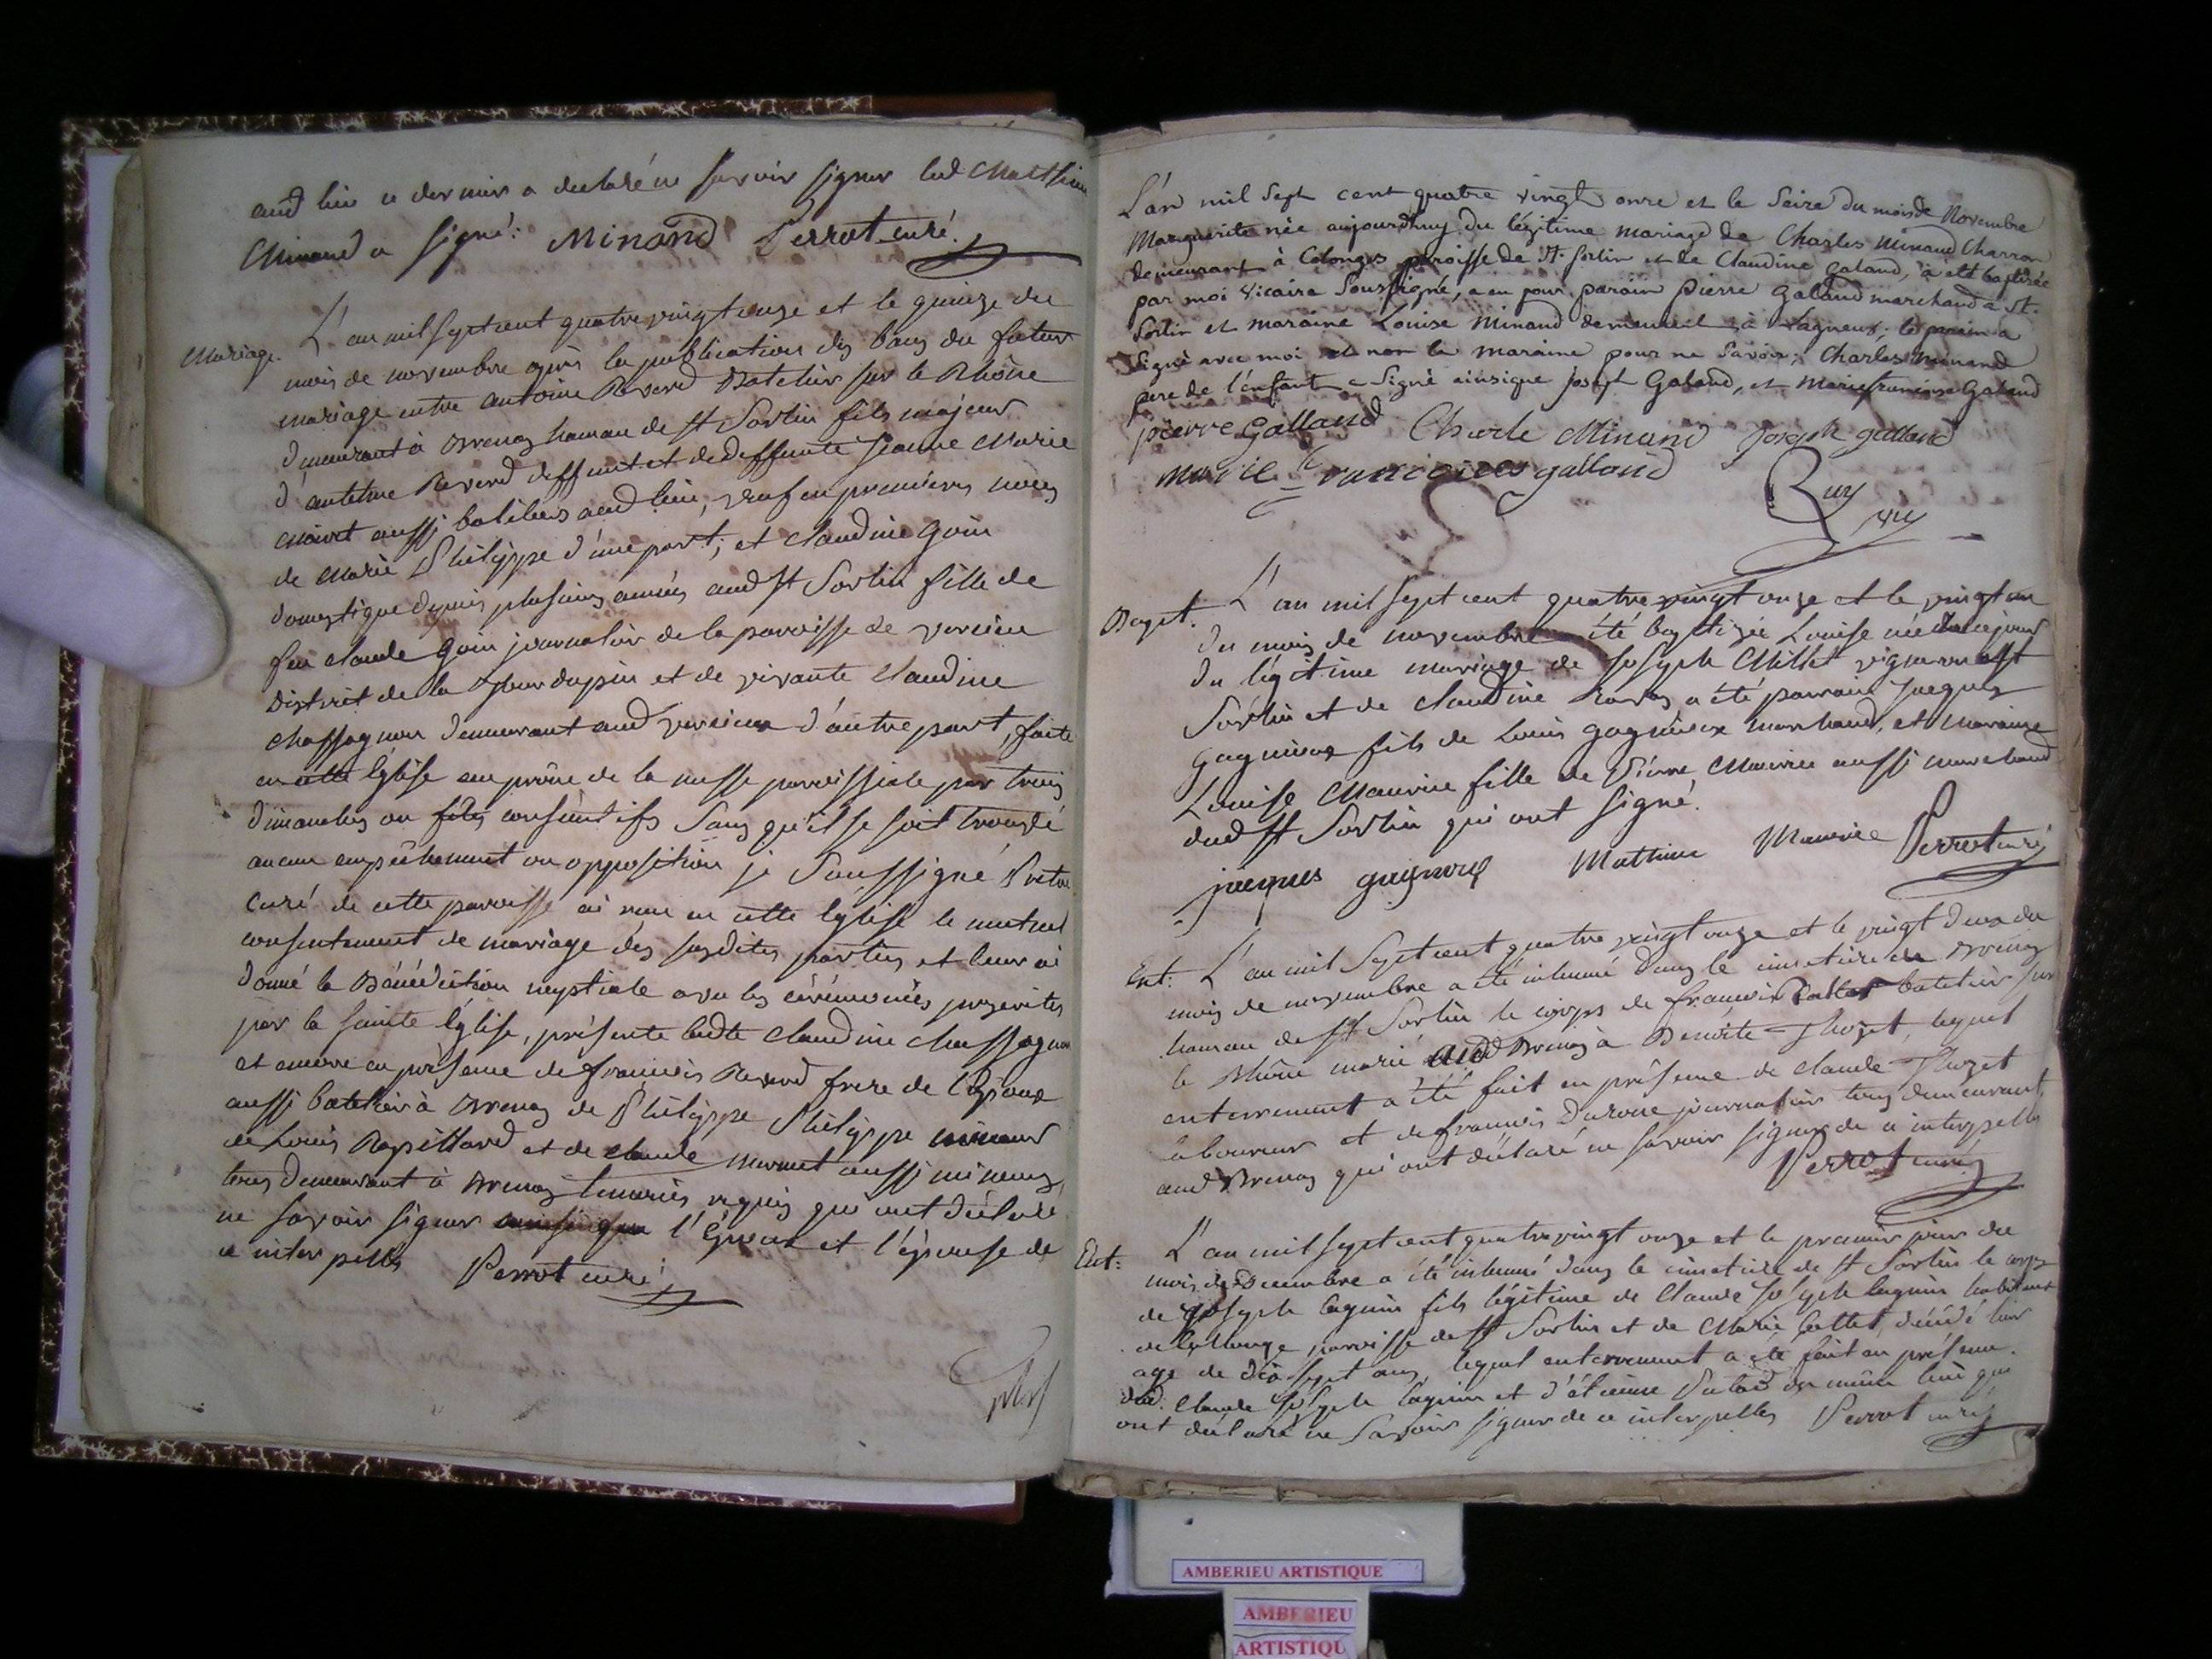 aud lieu ce dernier a declaré ne savoir signer led Matthieu
Minand a signé: Minand Perrot curé.
Mariage. L'an mil sept cent quatre vingt onze et le quinze du
mois de novembre après la publication des bans du futur
mariage entre antoine Reverd Batelier sur le Rhône
demeurant à Brenaz hameau de St Sorlin fils majeur
d'antelme Reverd deffunt et de deffunte Jeanne Marie
aussi bateliers aud lieu, veuf en premières noces
de Marie Philippe d'une part; et claudine Goin
domestique depuis plusieurs années aud St Sorlin fille de
feu claude Goin journalier de la paroisse de
District de la tour dupin et de vivante Claudine
chassagnon demeurant aud d'autre part, faite
en cette église au prône de la messe paroissiale par trois
dimanches ou fêtes consécutifs sans qu'il se soit trouvé
aucun empêchement ou opposition je soussigné Prêtre
curé de cette paroisse ai reçu en cette église le mutuel
consentement de mariage des susdites parties et leur ai
donné la Bénédiction nuptiale avec les cérémonies prescrites
par la sainte église, présente ladte claudine chassagnon
et encore en présence de françois Reverd frere de l'époux
aussi batelier à Brenaz de Philippe Philippe mineur
de Louis Rapillard et de claude aussi mineurs,
tous demeurant à Brenaz temoins requis qui ont déclaré
ne savoir signer ainsi que l'époux et l'épouse de
ce interpellés Perrot curé
L'an mil sept cent quatre vingt onze et le seize du mois de Novembre
Marguerite née aujourdhuy du légitime mariage de Charles Minand Charron
demeurant à Colonges paroisse de St. sorlin et de Claudine galand, à eté baptisée
par moi vicaire soussigné, a eu pour parain Pierre Galand marchand a St.
Sorlin et maraine Louise Minand demeurant à Lagneux. le parain a
signé avec moi et non la maraine pour ne savoir; Charles minand
pere de l'enfant a signé ainsi que joseph Galand, et marie francoise Galand
pierre galland Charle Minand Joseph galland
marie francoises galland
Ruy
vic
Bapt. L'an mil sept cent quatre vingt onze et le vingt un
du mois de novembre a été baptisée Louise née de ce jour
du légitime mariage de Joseph Millet vigneron a St
Sorlin et de claudine a été parrain Jacques
Gagnieux fils de Louis gagnieux marchand, et marraine
Louise Maurice fille de Pierre Maurice aussi marchand
dud St Sorlin qui ont signé.
jacques Mathieu Maurice Perrot curé
Ent. L'an mil sept cent quatre vingt onze et le vingt deux du
mois de novembre a été inhumé dans le cimetière de Brenaz
hameau de St Sorlin le corps de françois batelier sur
le Rhône marié aud Brenaz à Benoite Thozet, lequel
enterrement a été fait en présence de claude Thozet
laboureur et de françois journalier tous demeurant
aud Brenaz qui ont déclaré ne savoir signer de ce interpellés
Perrot curé
Ent: L'an mil sept cent quatre vingt onze et le premier jour du
mois de Décembre a été inhumé dans le cimetière de St Sorlin le corps
de Joseph fils légitime de Claude Joseph habitant
de Collonge paroisse de St Sorlin et de Marie décédé hier
age de dix sept ans, lequel enterrement a été fait en présence
dud. Claude Joseph et d'étienne du même lieu qui
ont déclaré ne savoir signer de ce interpellés Perrot curé
AMBERIEU ARTISTIQUE
AMBERIEU
ARTISTIQU